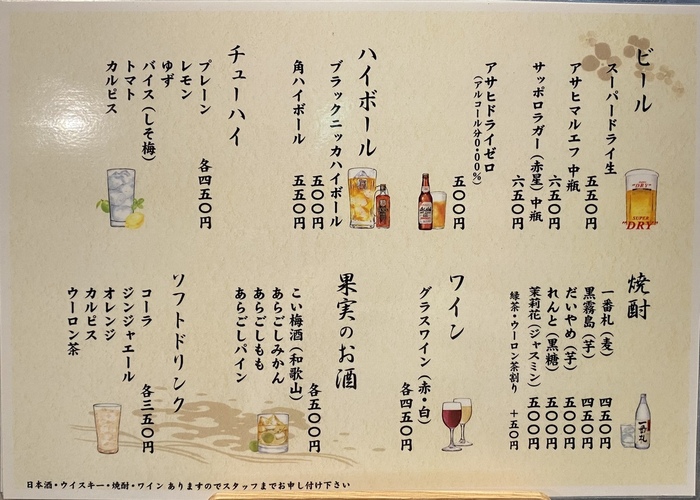 ビール
スーパードライ生
五五〇円
アサヒマルエフ 中瓶
六五〇円
サッポロラガー(赤星)中瓶
六五〇円
アサヒドライゼロ
(アルコール分0.00%)
五〇〇円
ハイボール
ブラックニッカハイボール
五〇〇円
角ハイボール 五五〇円
チューハイ
プレーン 各四五〇円
レモン
ゆず
バイス(しそ梅)
トマト
カルピス
焼酎
一番札(麦) 四五〇円
黒霧島(芋) 四五〇円
だいやめ(芋) 五〇〇円
れんと(黒糖) 五〇〇円
茉莉花(ジャスミン) 五〇〇円
緑茶・ウーロン茶割り +五〇円
ワイン
グラスワイン(赤・白)
各四五〇円
果実のお酒
各五〇〇円
こい梅酒(和歌山)
あらごしみかん
あらごしもも
あらごしパイン
ソフトドリンク
各三五〇円
コーラ
ジンジャエール
オレンジ
カルピス
ウーロン茶
日本酒・ウイスキー・焼酎・ワイン ありますのでスタッフまでお申し付け下さい
"DRY"
SUPER
"DRY"
一番札